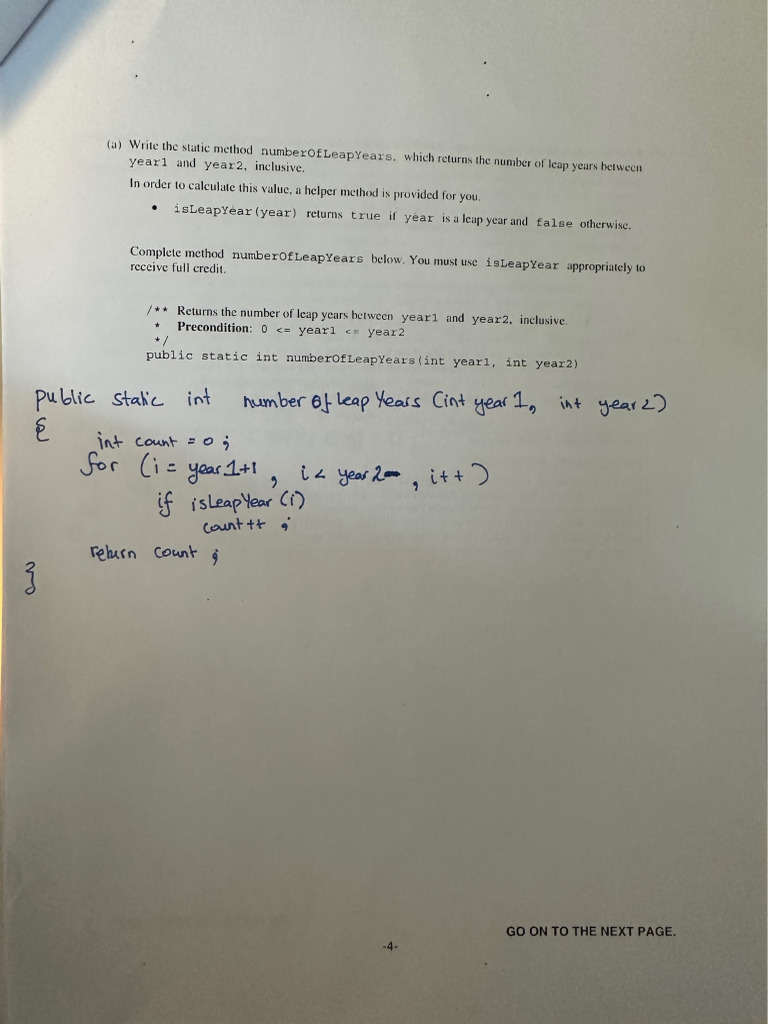 (a) Write the static method numberOfLeapYears, which returns the number of leap years between
year1 and year2, inclusive.
In order to calculate this value, a helper method is provided for you.
• isLeapYear(year) returns true if year is a leap year and false otherwise.
Complete method numberOfLeapYears below. You must use isLeapYear appropriately to
receive full credit.
/** Returns the number of leap years between year1 and year2, inclusive.
* Precondition: 0 <= year1 <= year2
*/
public static int numberOfLeapYears(int year1, int year2)
public static int number of leap Years (int year 1, int year 2)
{
int count = 0 ;
for (i = year 1+1 , i < year 2 , i++)
if isLeapYear (i)
count ++ ;
return count ;
}
GO ON TO THE NEXT PAGE.
-4-